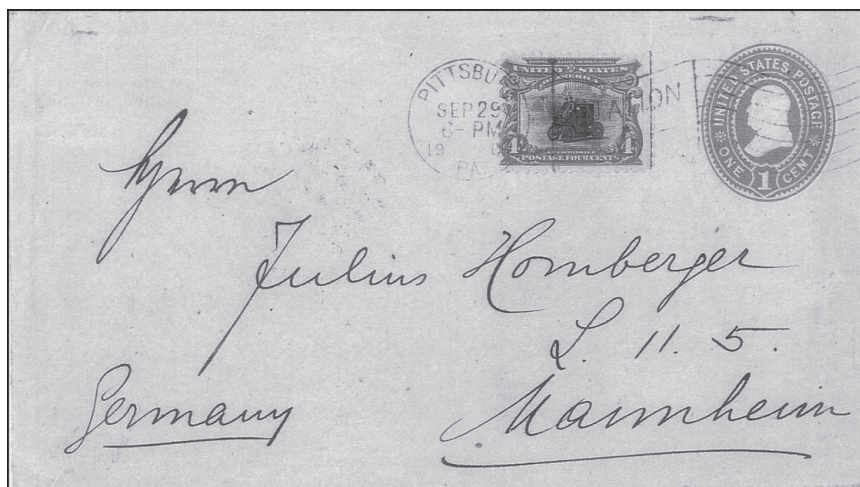 PITTSBU
SEP 29
6-PM
19
PA.
UNITED STATES
OF AMERICA
4 4
POSTAGE FOUR CENTS
UNITED STATES POSTAGE
ONE 1 CENT
Herrn
Julius Homberger
L. 11. 5.
Mannheim
Germany